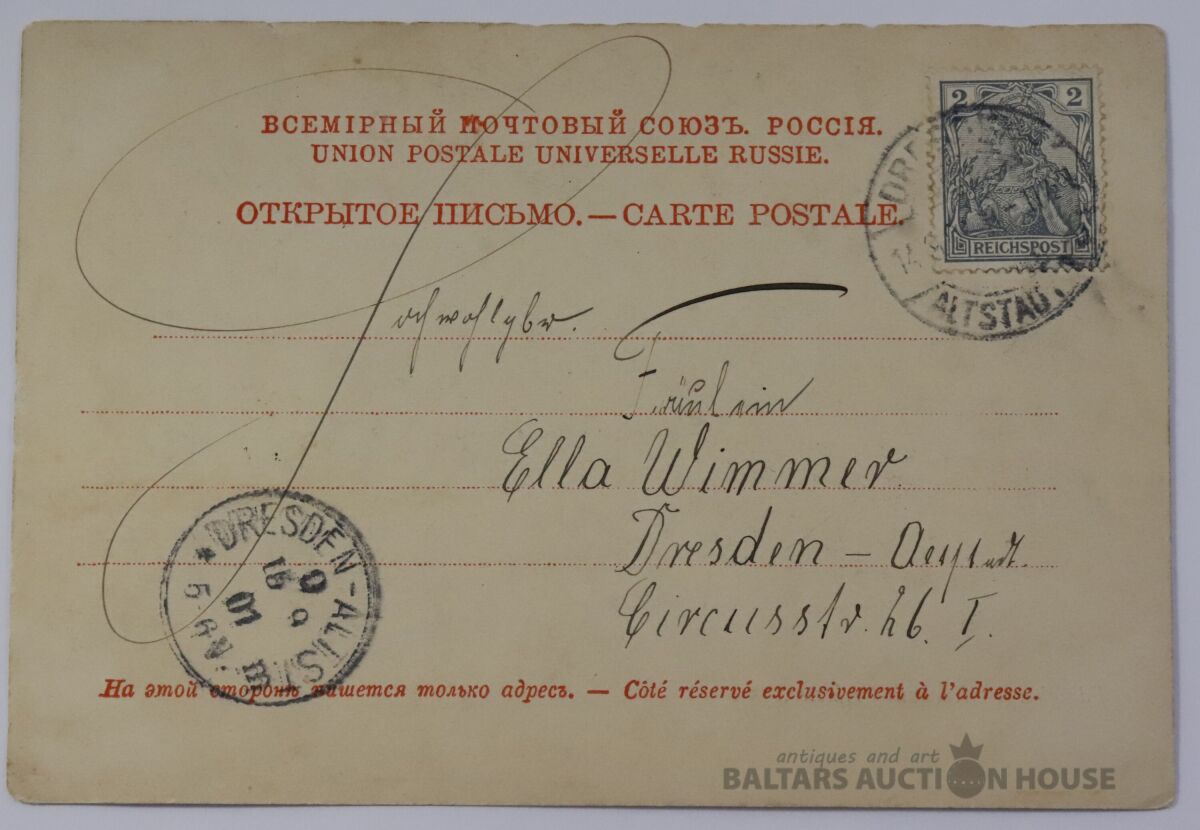 ВСЕМІРНЫЙ ПОЧТОВЫЙ СОЮЗЪ. РОССІЯ.
UNION POSTALE UNIVERSELLE RUSSIE.
ОТКРЫТОЕ ПИСЬМО. — CARTE POSTALE.
2 2
REICHSPOST
ALTSTADT
Fräulein
Ella Wimmer
Dresden –
Circusstr. 26. I.
* DRESDEN-ALTST.
01
5-6 N.
На этой сторонѣ пишется только адресъ. — Côté réservé exclusivement à l'adresse.
antiques and art
BALTARS AUCTION HOUSE